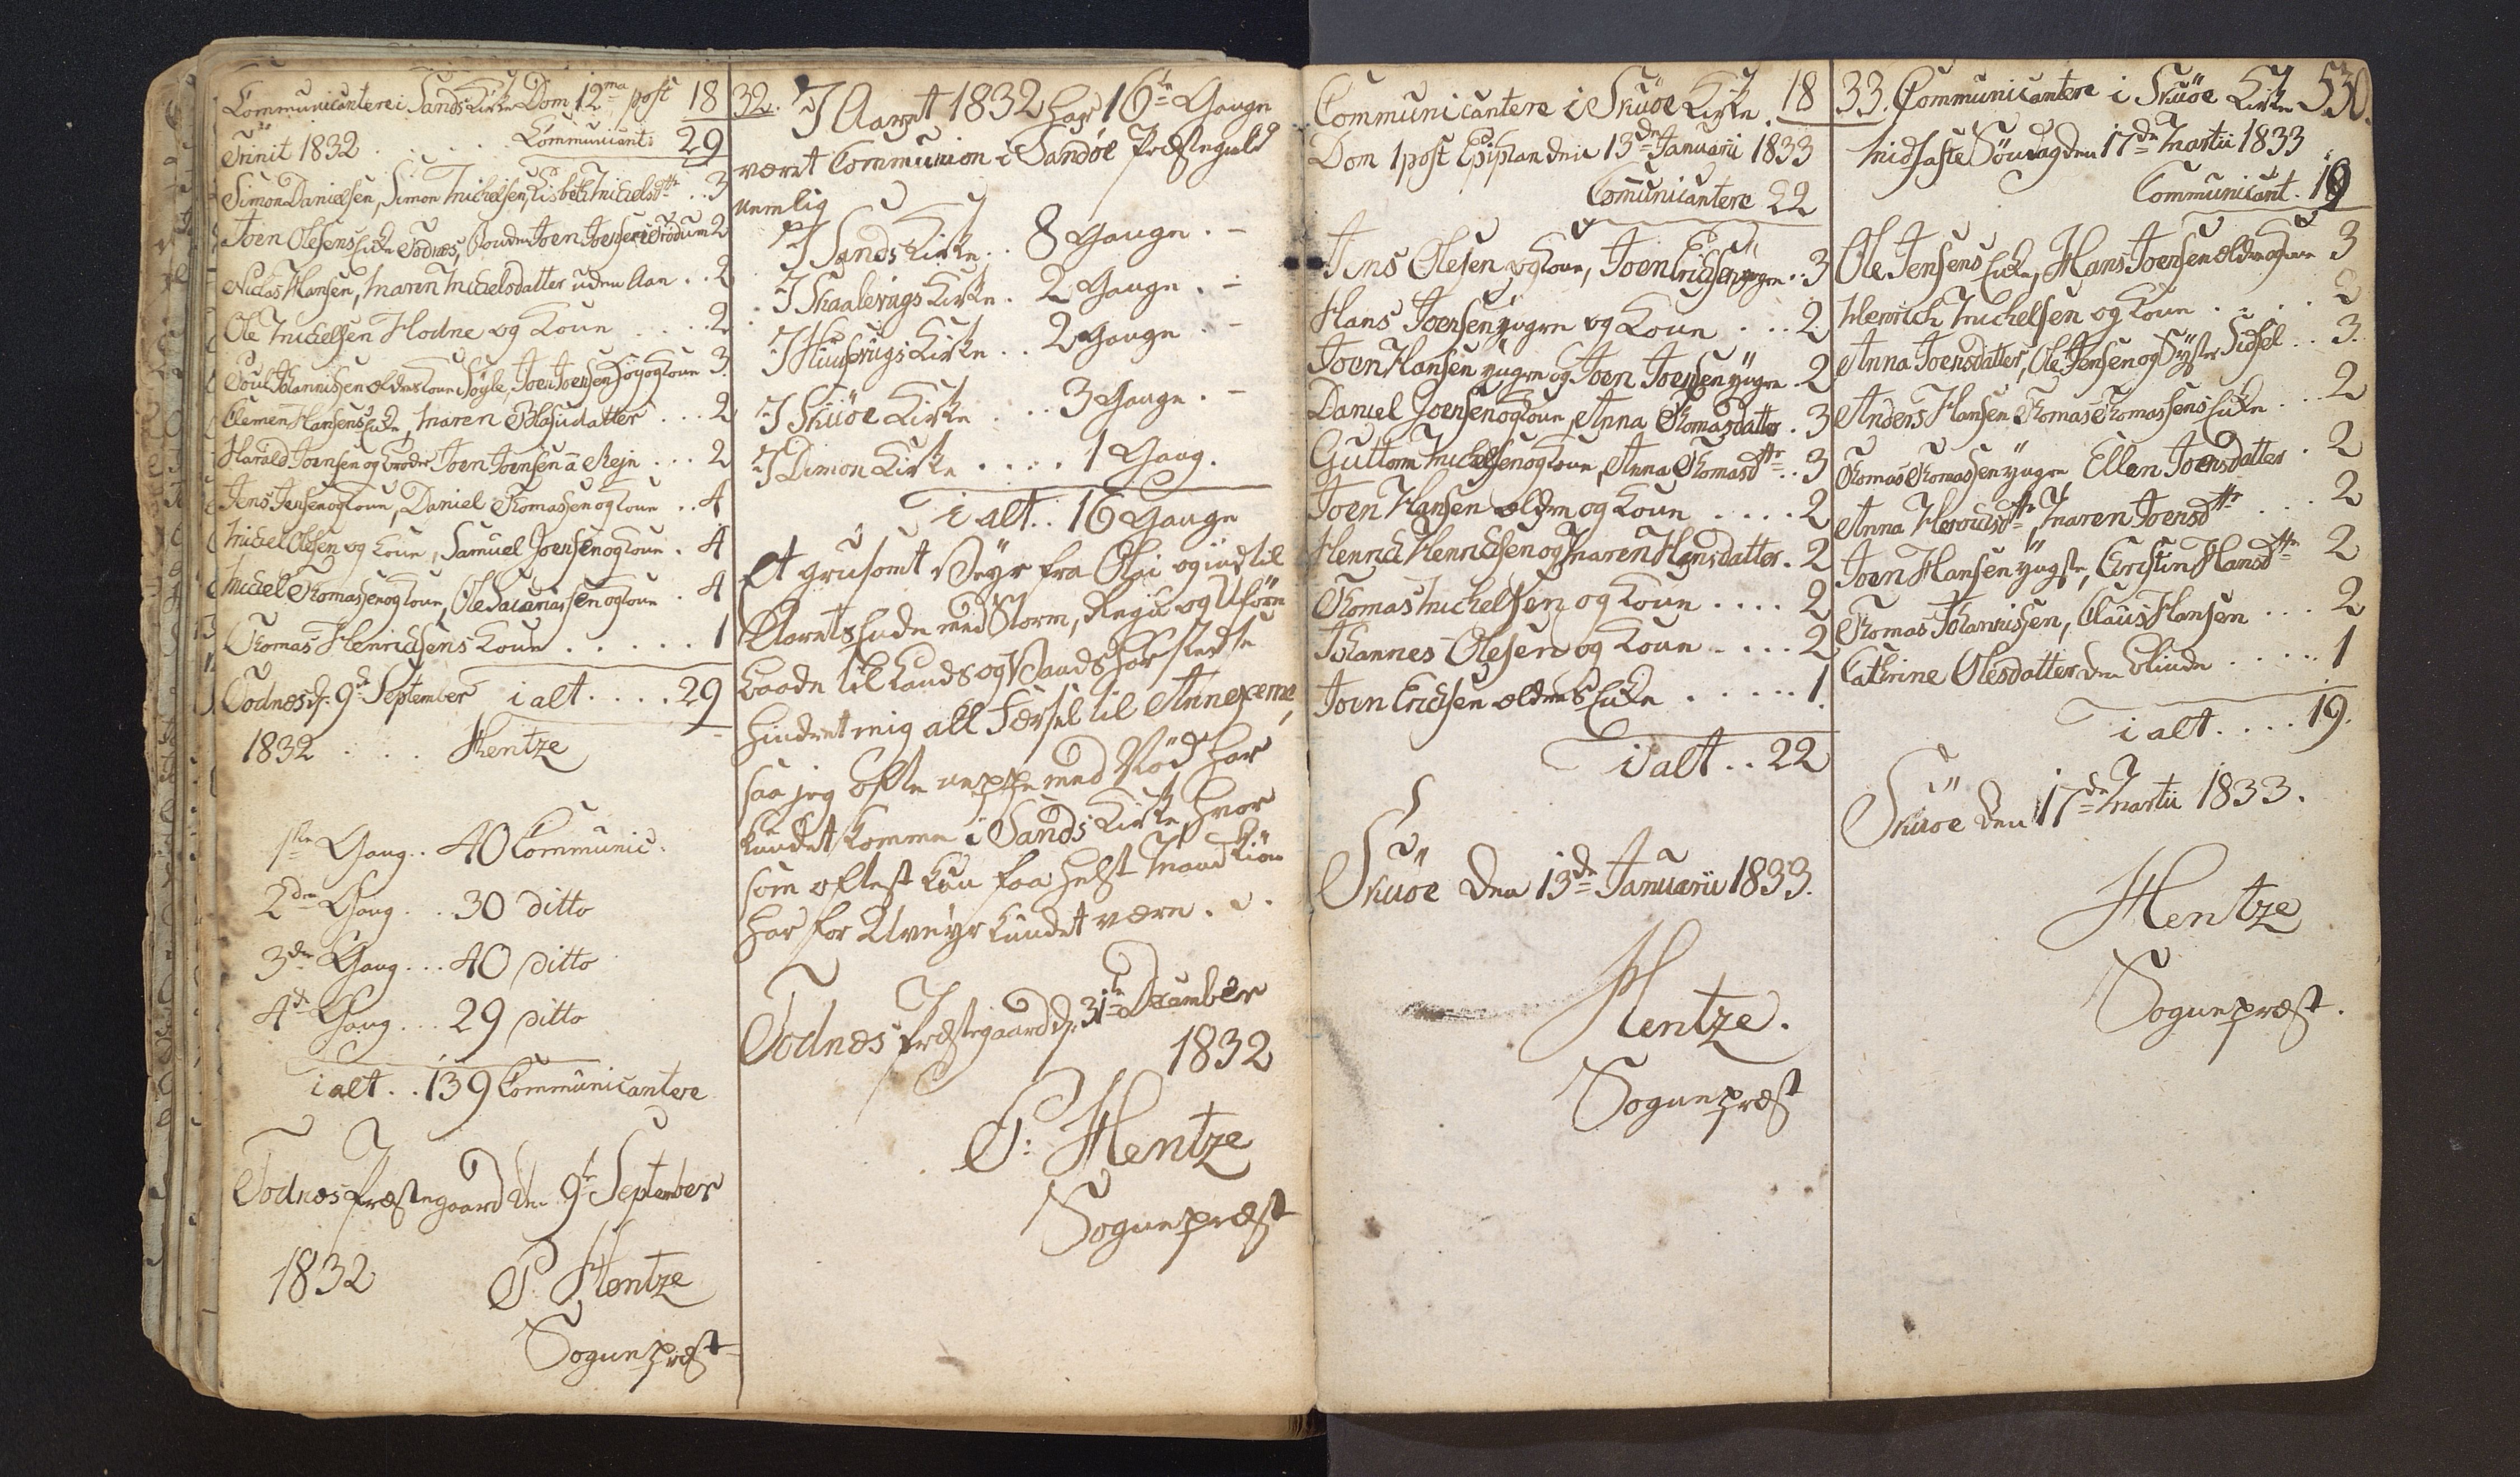 Communicantere i Sands Kirke Dom 12ma post 18
Trinit 1832 . . . . . Communicant: 29
Simon Danielsen, Simon Michelsen, Lisbeth Michelsdttr . . 3
Joen Olesens Enke Todnæs, Joen Joensen Trödum 2
Niclas Hansen, Maren Michelsdatter uden Aan . . 2
Ole Michelsen Hodne og Kone . . . . 2
Poul Johannissen ældres Kone , Joen Joensen og Kone 3.
Clemen Hansens Enke, Maren Blasiudatter . . . 2
Harald Joensen og Broder Joen Joensen a Rejn . . . 2
Jens Jensen og Kone, Daniel Thomassen og Kone . . 4
Michel Olesen og Kone, Samuel Joensen og Kone . 4
Michel Thomassen og Kone, Ole Sacariassen og Kone . 4
Thomas Henrichsens Kone . . . . . 1
Todnæs d: 9de September i alt . . . . 29
1832 . . . . Hentze
1ste Gang . . 40 Communic.
2den Gang . . . 30 ditto
3die Gang . . . 40 ditto
4de Gang . . . 29 ditto
i alt . . 139 Communicantere
Todnæs Præstegaard den 9de September
1832 P. Hentze
Sognepræst
32. I Aaret 1832 har 16ten Gange
været Communion i Sandöe Præstegield
nemlig
I Sands Kirke . . 8 Gange . -
I Skaalevigs Kirke . 2 Gange . -
I Huusevigs Kirke . . 2 Gange . -
I Skuöe Kirke . . . 3 Gange . -
I Dimon Kirke . . . . 1 Gang.
i alt . . 16 Gange
Et grusomt Vejr fra Olai og indtil
Aarets Ende med Storm, Regn og Uföre
baade til Lands og Vands har stedse
hindret mig all Færsel til Annexerne,
saa jeg ofte neppe med Nöd har
kundet komme i Sands Kirke, hvor
som oftest kun faa helst Mandkiön
har for Uvejr kundet være . .
Todnæs Præstegaard d: 31te December
1832
P: Hentze
Sognepræst
Communicantere i Skuöe Kirke. 18
Dom 1 post Epiphan den 13de Januarii 1833
Communicantere 22
Jens Olesen og Kone, Joen Erichsen yngre . . 3
Hans Joensen yngre og Kone . . . 2
Joen Hansen yngre og Joen Joensen yngre . 2
Daniel Joensen og Kone, Anna Thomasdatter . 3
Guttorm Michelsen og Kone, Anna Thomasdttr . . 3
Joen Hansen ældre og Kone . . . . 2
Henrich Henrichsen og Maren Hansdatter . 2
Thomas Michelsen og Kone . . . . 2
Johannes Olesen og Kone . . . . 2
Joen Erichsen ældres Enke . . . . . 1.
i alt . . 22
Skuöe den 13de Januarii 1833.
Hentze.
Sognepræst
33. Communicantere i Skuöe Kirke 530.
Midfaste Söndag den 17de Martii 1833
Communicant. 19
Ole Jensens Enke, Hans Joensen ældre og Kone 3
Henrich Michelsen og Kone . . . . 2
Anna Joensdatter, Ole Jensen og Syster Sidsel . . 3.
Anders Hansen Thomas Thomassens Enke . . . 2
Thomas Thomassen yngre, Ellen Joensdatter . 2
Anna dttr, Maren Joensdttr . . 2
Joen Hansen yngste, Christin Hansdttr 2
Thomas Johannissen, Claus Hansen . . . 2
Cathrine Olesdatter den blinde . . . . . 1
i alt . . . . 19.
Skuöe den 17de Martii 1833.
Hentze
Sognepræst.